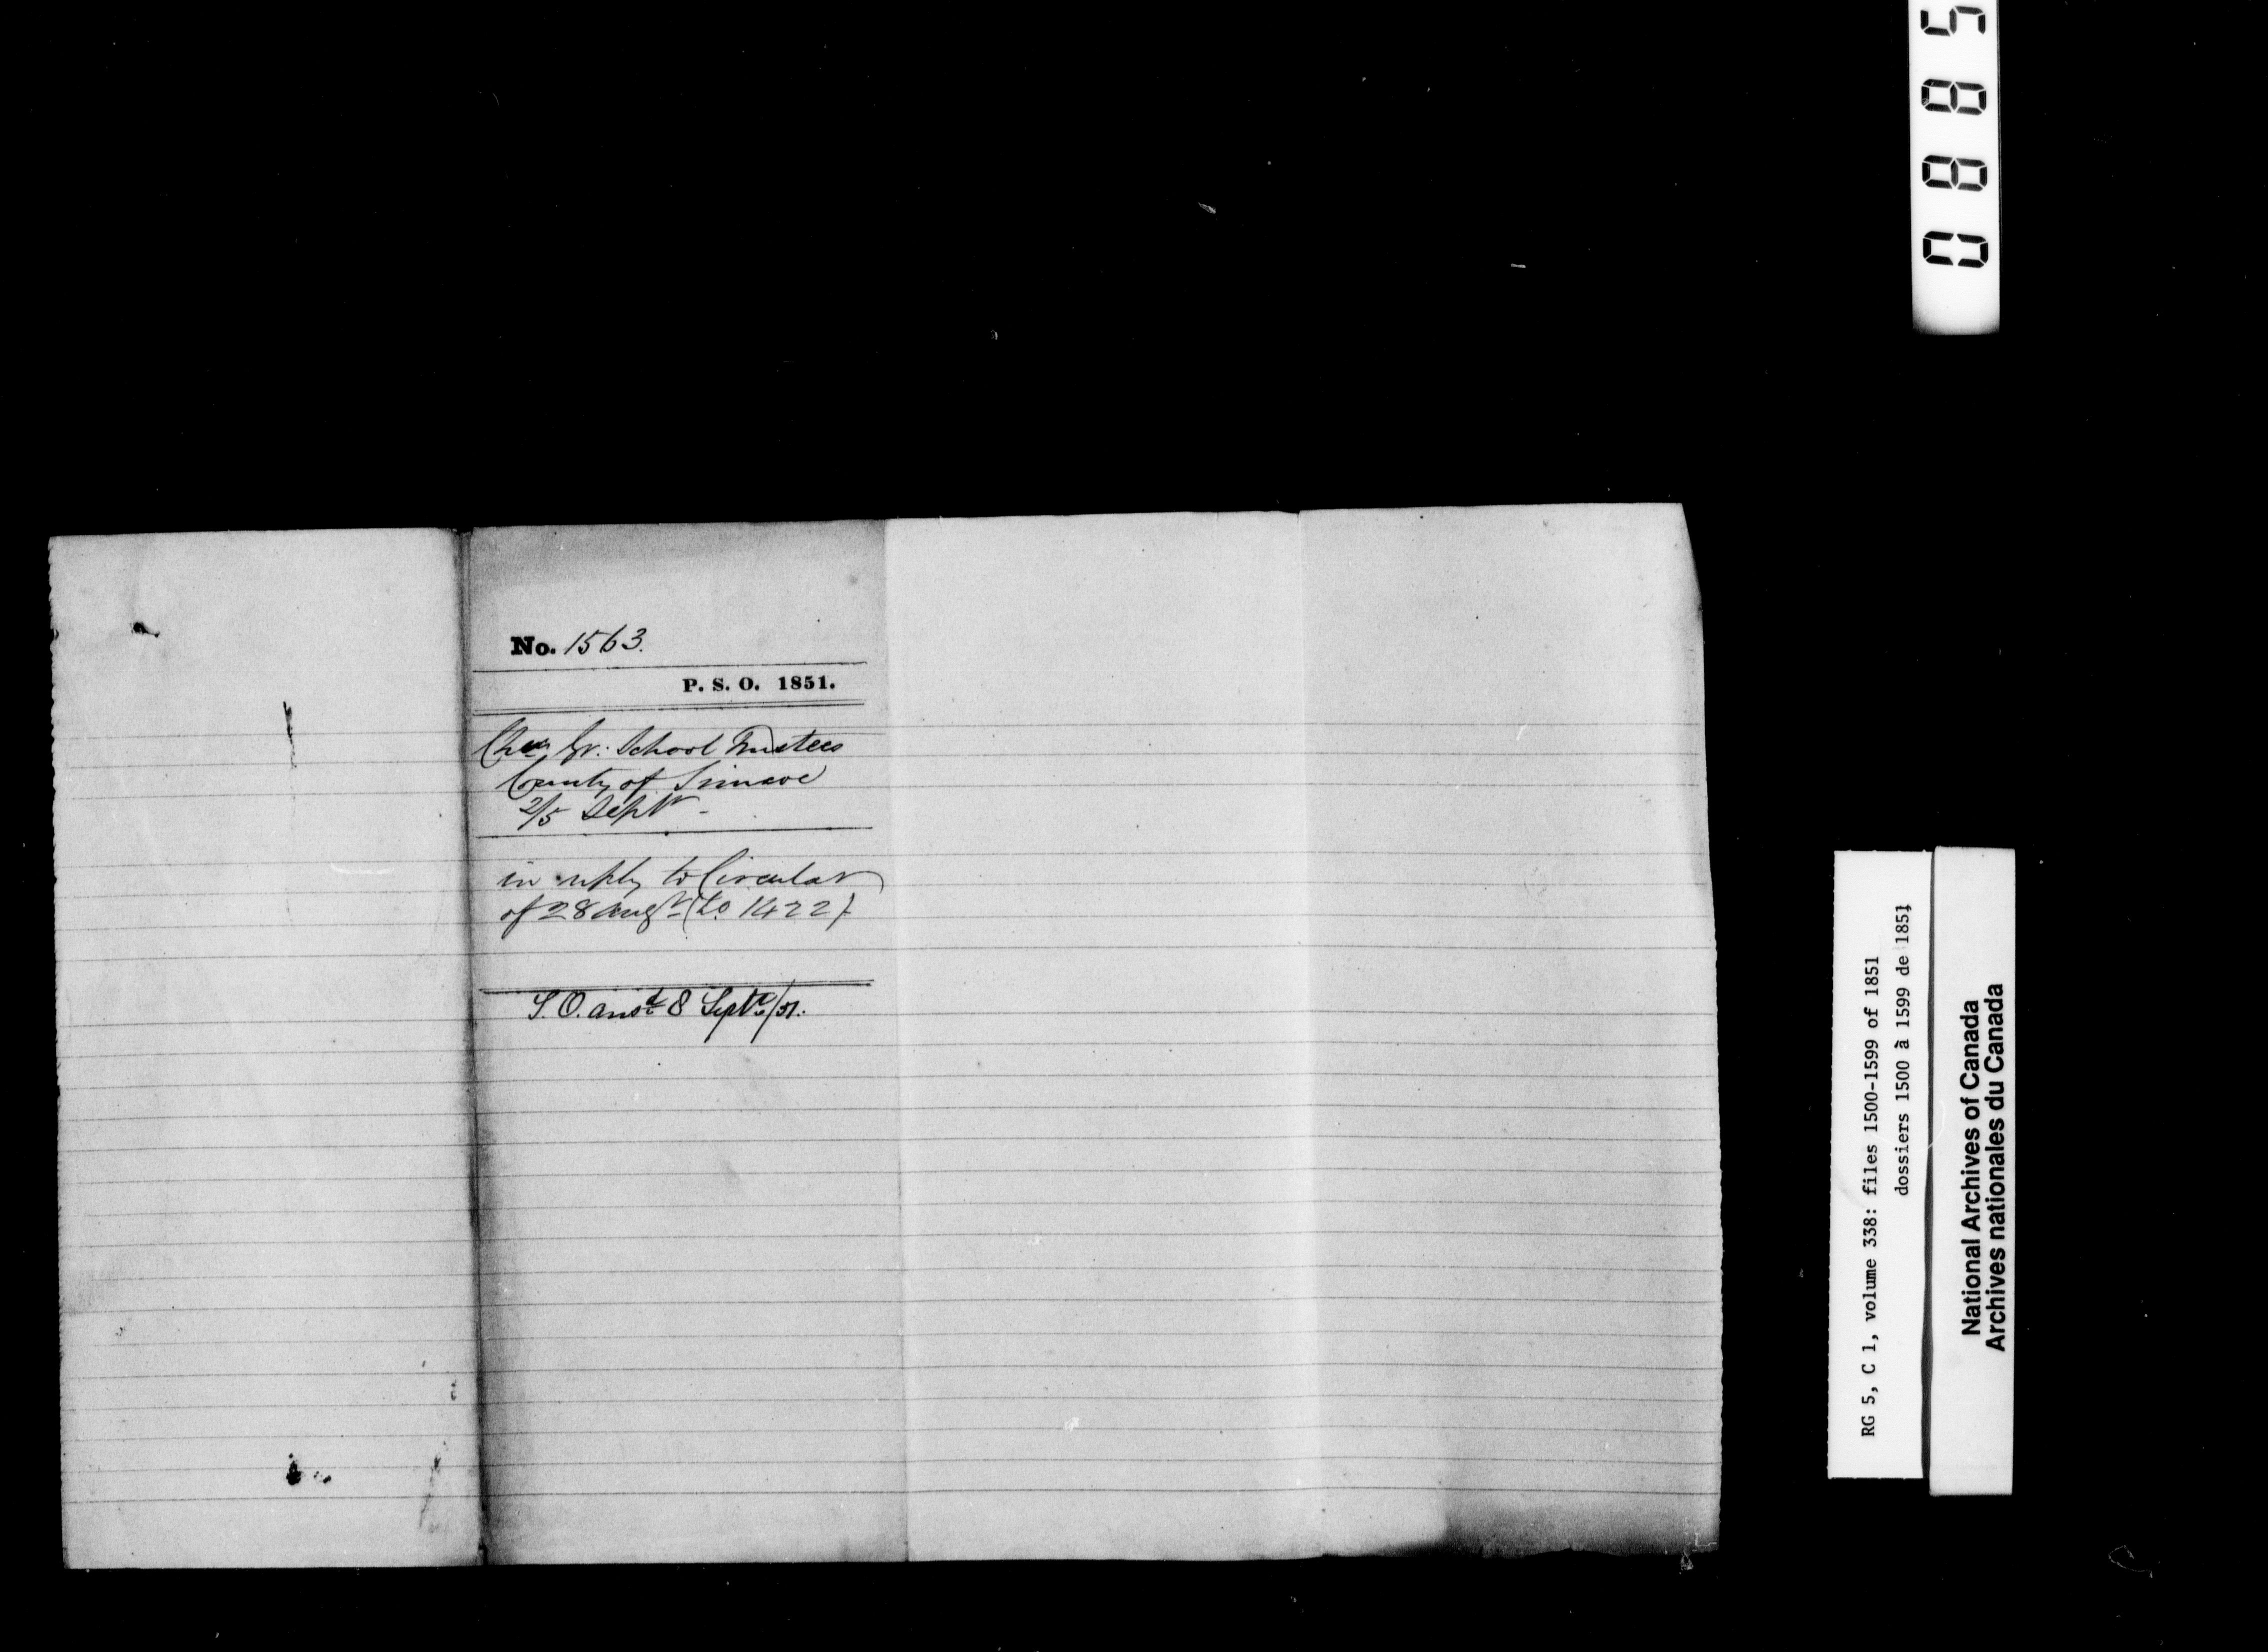 No. 1563.
P. S. O. 1851.
Chn Gr: School Trustees
County of Simcoe
2/5 Septr -
in reply to Circular
of 28 Augt (to 1422).
S.O. ansd 8 Septr/51.
0885
RG 5, C 1, volume 338: files 1500-1599 of 1851
dossiers 1500 à 1599 de 1851
National Archives of Canada
Archives nationales du Canada